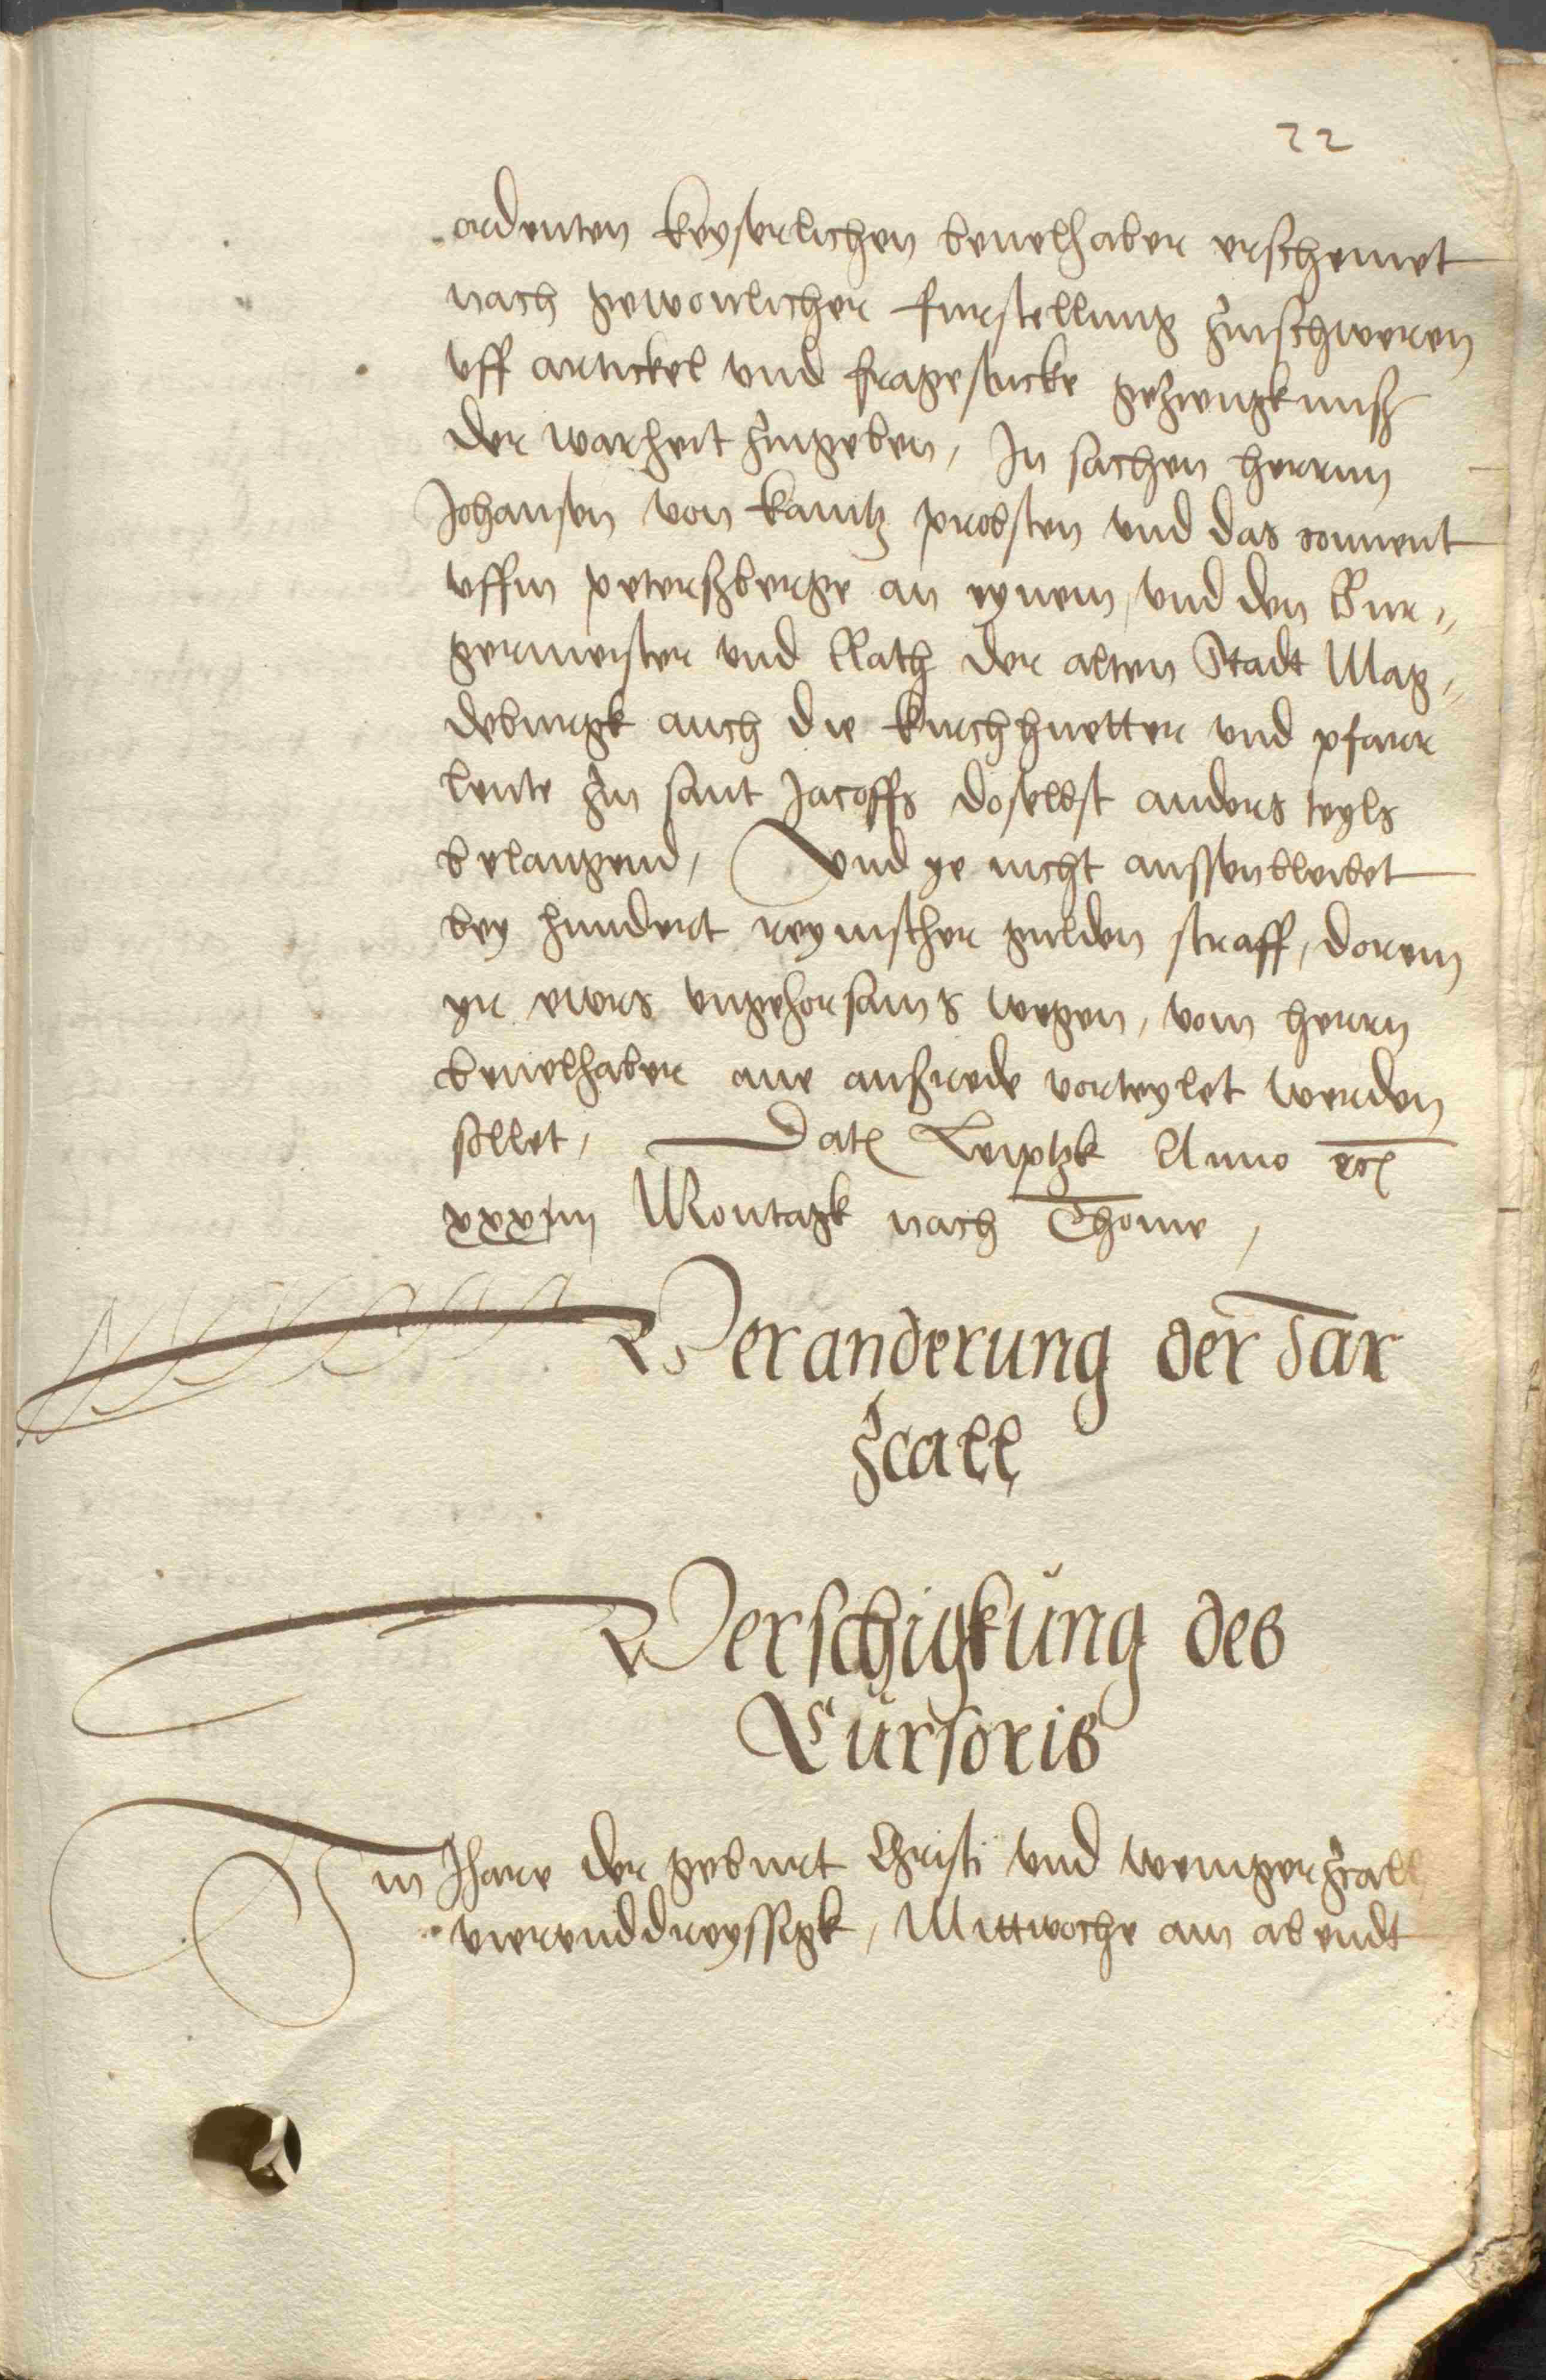 22
ordenten keyserlichen beuelhaber erscheinet
nach gewonlicher furstellung zuschweren
vff artickel vnd fragestucke gezeugknuß
der warheit zugeben, In sachen herrnn
Johansen von kanitz probsten vnd das conuent
vffm peterßberge an eynem, vnd den Bur„
germeister vnd Rath der alten Stadt Mag„
deburgk auch die kirchhuetter vnd pfarr
leute zu sant Jacoffs doselbst anders teyls
belangend, Vnd ye nicht aussenbleibet
bey hundert reynischer gulden straff, dorein
yr ewrs vngehorsams wegen, vom herrn
beuelhaber ane außrede vorteylet werden
sollet, Dat Leiptzk Anno etc
xxxiiii Montagk nach Thome,
Veranderung der Jar
zcall
Verschigkung des
Cursoris
Im Jhare der geburt Christi vnd wenigerzcall
vierunddreyssigk, Mittwoche am abendt